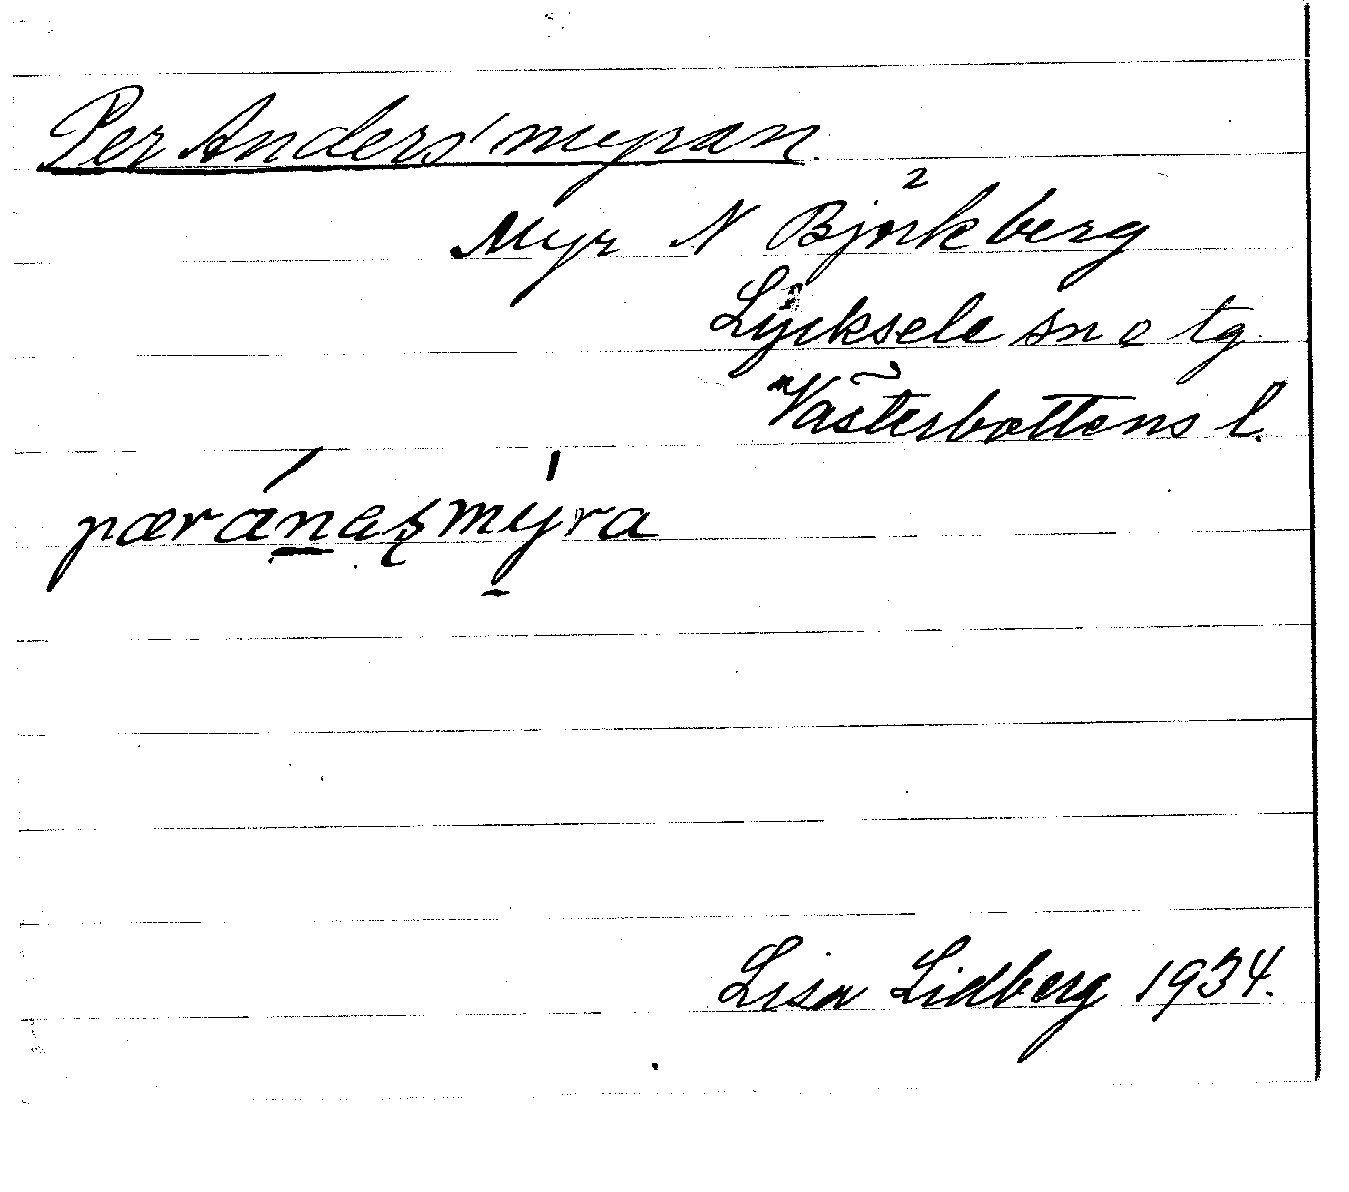 Per Anders' myran.
Myr N Björkberg
Lycksele sn o tg.
Västerbottens l.
pæránaʂmýra
Lisa Lidberg 1934.